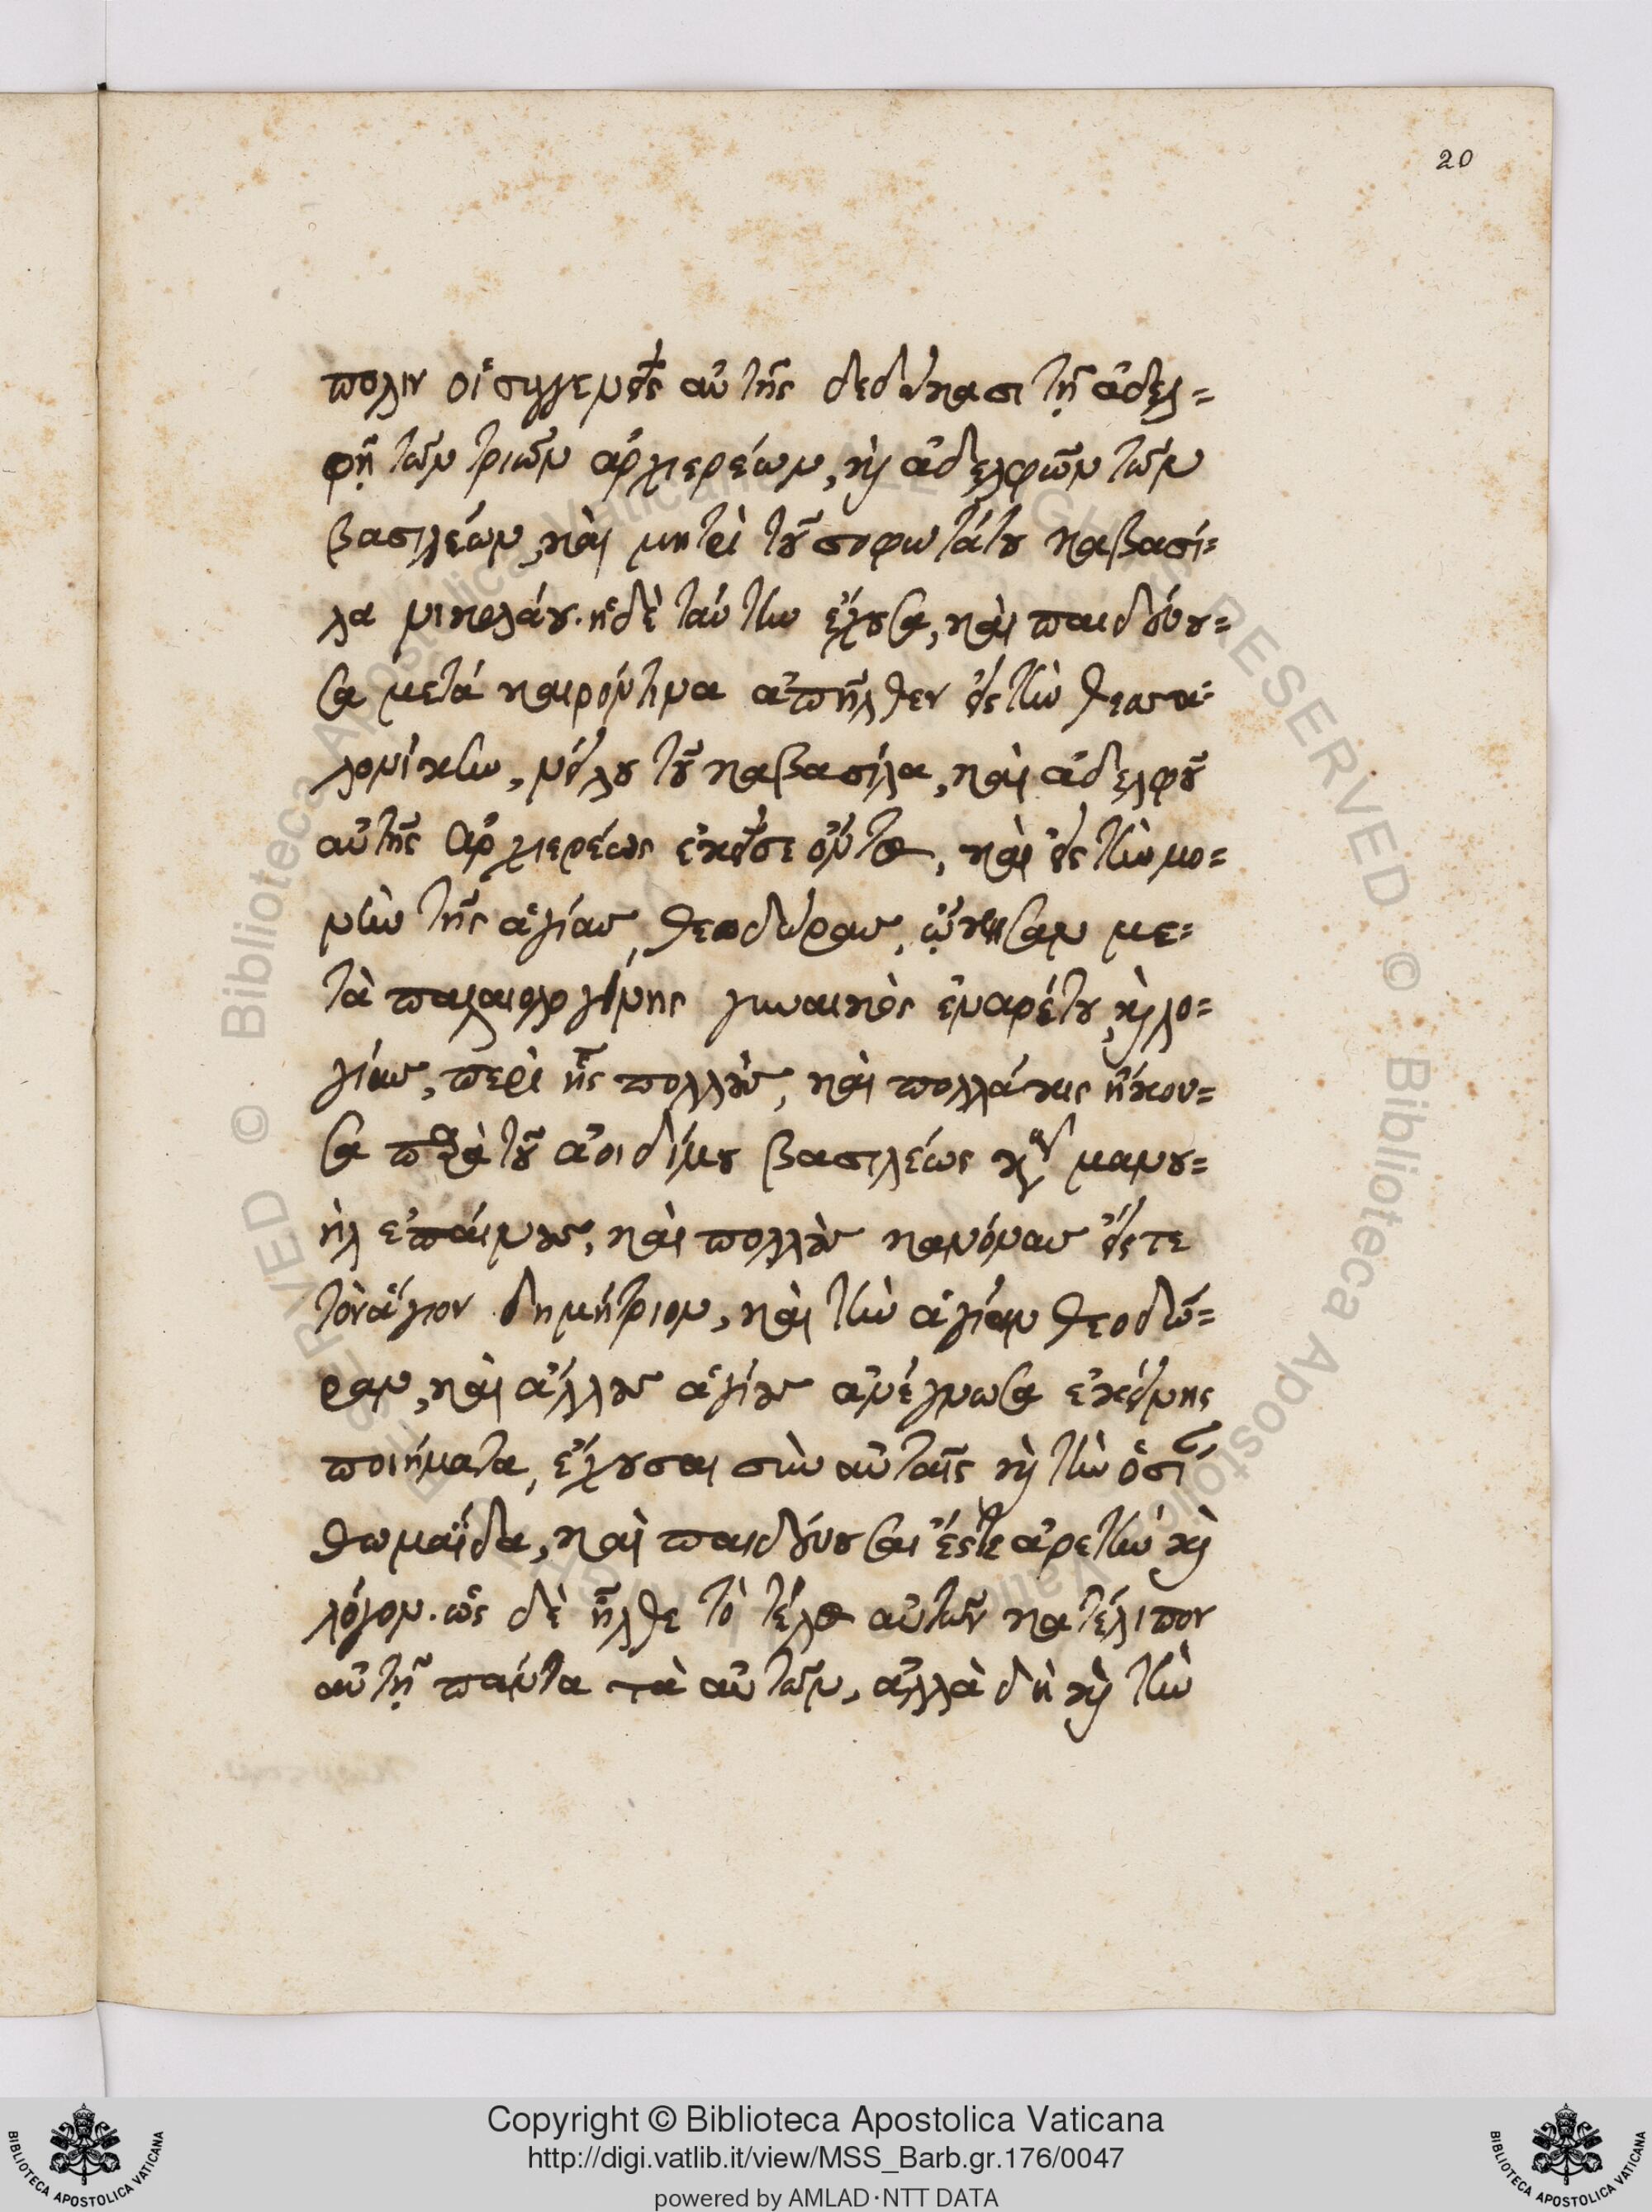 20
πολιν οἱ συγγενεῖς αὐτῆς δεδώκασι τῇ ἀδελ=
φῇ τῶν τριῶν ἀρχιερέων, κỳ ἀδελφῶν τῶν
βασιλέων, καὶ μητρὶ τοῦ σοφωτάτου καβασί=
λα νικολάου. ἡ δὲ ταύτην ἔχουσα, καὶ παιδεύου=
σα μετά καιρόν τινα ἀπῆλθεν εἰς τὴν θεσσα=
λονίκην, νείλου τοῦ καβασίλα, καὶ ἀδελφοῦ
αὐτῆς ἀρχιερέως ἐκεῖσε ὄντος, καὶ εἰς τὴν μο=
νὴν τῆς ἁγίας θεοδώρας, ᾤκησαν με=
τὰ παλαιολογίνης γυναικὸς ἐναρέτου, κỳ λο=
γίας, περὶ ἧς πολλοὺς, καὶ πολλάκις ἤκου=
σα παρὰ τοῦ ἀοιδίμου βασιλέως κυροῦ μανου=
ὴλ ἐπαίνους, καὶ πολλοὺς κανόνας εἴς τε
τὸν ἅγιον δημήτριον, καὶ τὴν ἁγίαν θεοδώ=
ραν, καὶ ἄλλους ἁγίους ἀνέγνωσα ἐκείνης
ποιήματα, ἔχουσαι σὺν αὐταῖς κỳ τὴν ὁσίαν
θωμαΐδα, καὶ παιδεύουσαι ἔς τε ἀρετὴν κỳ
λόγον. ὡς δὲ ἦλθε τὸ τέλος αὐτῶν κατέλιπον
αὐτῇ πάντα τὰ αὐτῶν, ἀλλὰ δὴ κỳ τὴν
Copyright © Biblioteca Apostolica Vaticana
http://digi.vatlib.it/view/MSS_Barb.gr.176/0047
powered by AMLAD·NTT DATA
BIBLIOTECA APOSTOLICA VATICANA
BIBLIOTECA APOSTOLICA VATICANA